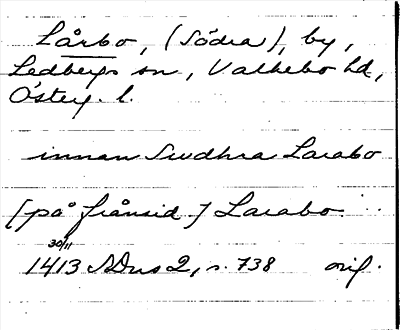 Lårbo, (Södra), by,
Ledbergs sn, Valkebo hd,
Österg. l.
innan Swdhra Larabo
[på frånsid.] Larabo.
30/11
1413 SDns 2, s. 738 orig.